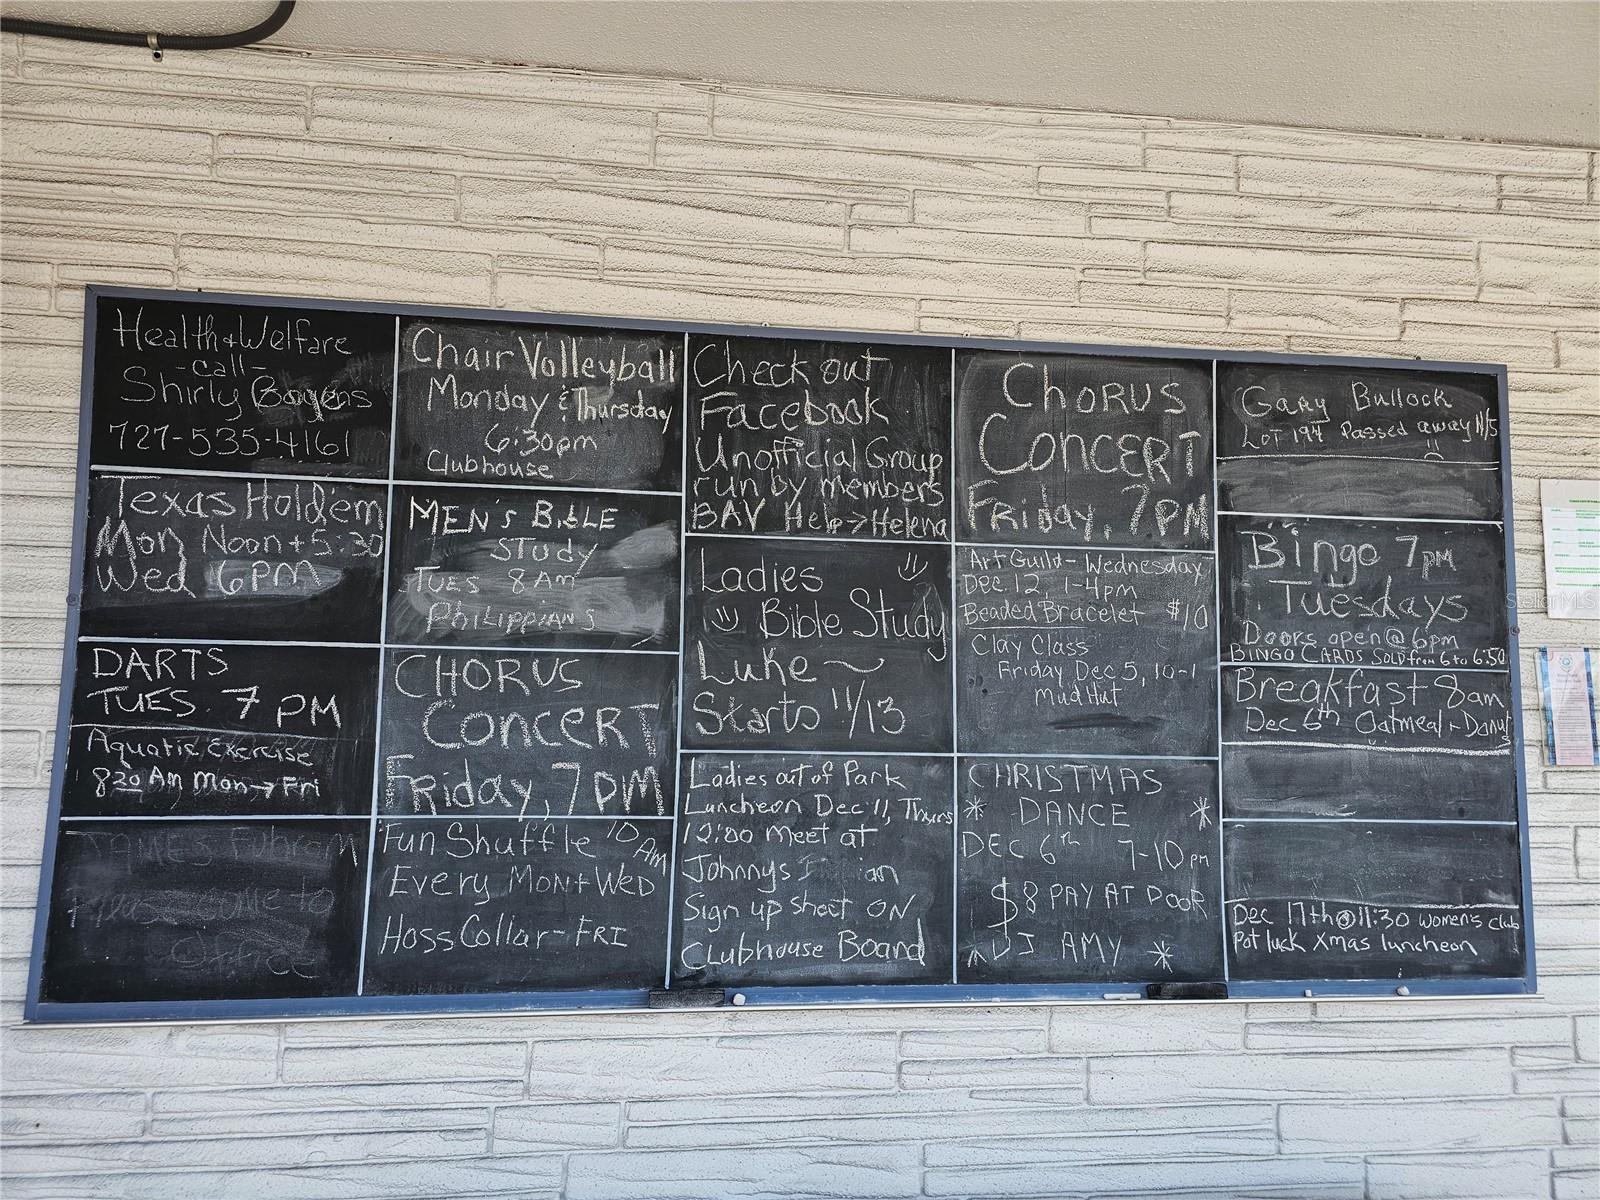 Health + Welfare
-call-
Shirly Bogens
727-535-4161
Texas Hold'em
Mon Noon + 5:30
Wed 6PM
DARTS
TUES. 7 PM
Aquatic Exercise
8:30 Am Mon → Fri
JAMES Fuhram
Please come to
Office
Chair Volleyball
Monday & Thursday
6:30pm
Clubhouse
MEN'S BIBLE
STudy
TUES 8 Am
PHILIPPIANS
CHORUS
CONCERT
FRiday, 7 PM
Fun Shuffle 10 Am
Every MON + WED
Hoss Collar - FRI
Check out
Facebook
Unofficial Group
run by members
BAV Help > Helena
Ladies
Bible Study
Luke ~
Starts 11/13
Ladies out of Park
Luncheon Dec 11, Thurs
12:00 meet at
Johnnys
Sign up sheet ON
Clubhouse Board
CHORUS
CONCERT
FRiday, 7 PM
Art Guild - Wednesday
Dec. 12, 1-4pm
Beaded Bracelet $10
Clay Class
Friday Dec 5, 10-1
Mud Hut
CHRISTMAS
* DANCE *
DEC 6th 7-10 pm
$8 PAY AT DOOR
* DJ AMY *
Gary Bullock
LOT 194 Passed away 11/5
Bingo 7pm
Tuesdays
Doors open @ 6pm
BINGO CARDS SOLD from 6 to 6:50
Breakfast 8am
Dec 6th Oatmeal + Donuts
Dec 17th @ 11:30 women's club
Pot luck Xmas luncheon
StellarMLS